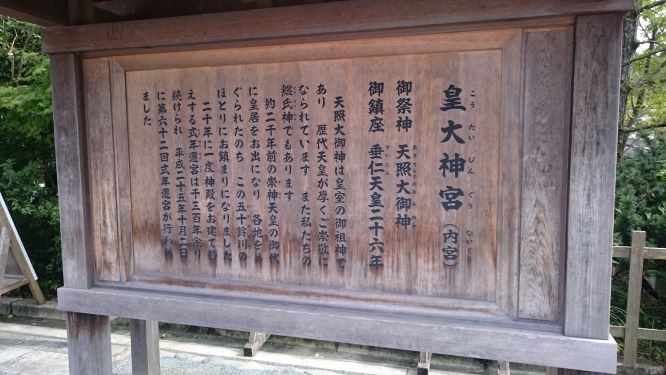 皇大神宮(内宮)
こうたいじんぐう ないくう
御祭神 天照大御神
あまてらすおおみかみ
御鎮座 垂仁天皇二十六年
すいにん
天照大御神は皇室の御祖神で
あり 歴代天皇が厚くご崇敬に
なられています また私たちの
総氏神でもあります
約二千年前の崇神天皇の御代
に皇居をお出になり 各地をめ
ぐられたのち この五十鈴川の
ほとりにお鎮まりになりました
二十年に一度神殿をお建て替
えする式年遷宮は千三百年余り
続けられ 平成二十五年十月二日
に第六十二回式年遷宮が行われ
ました